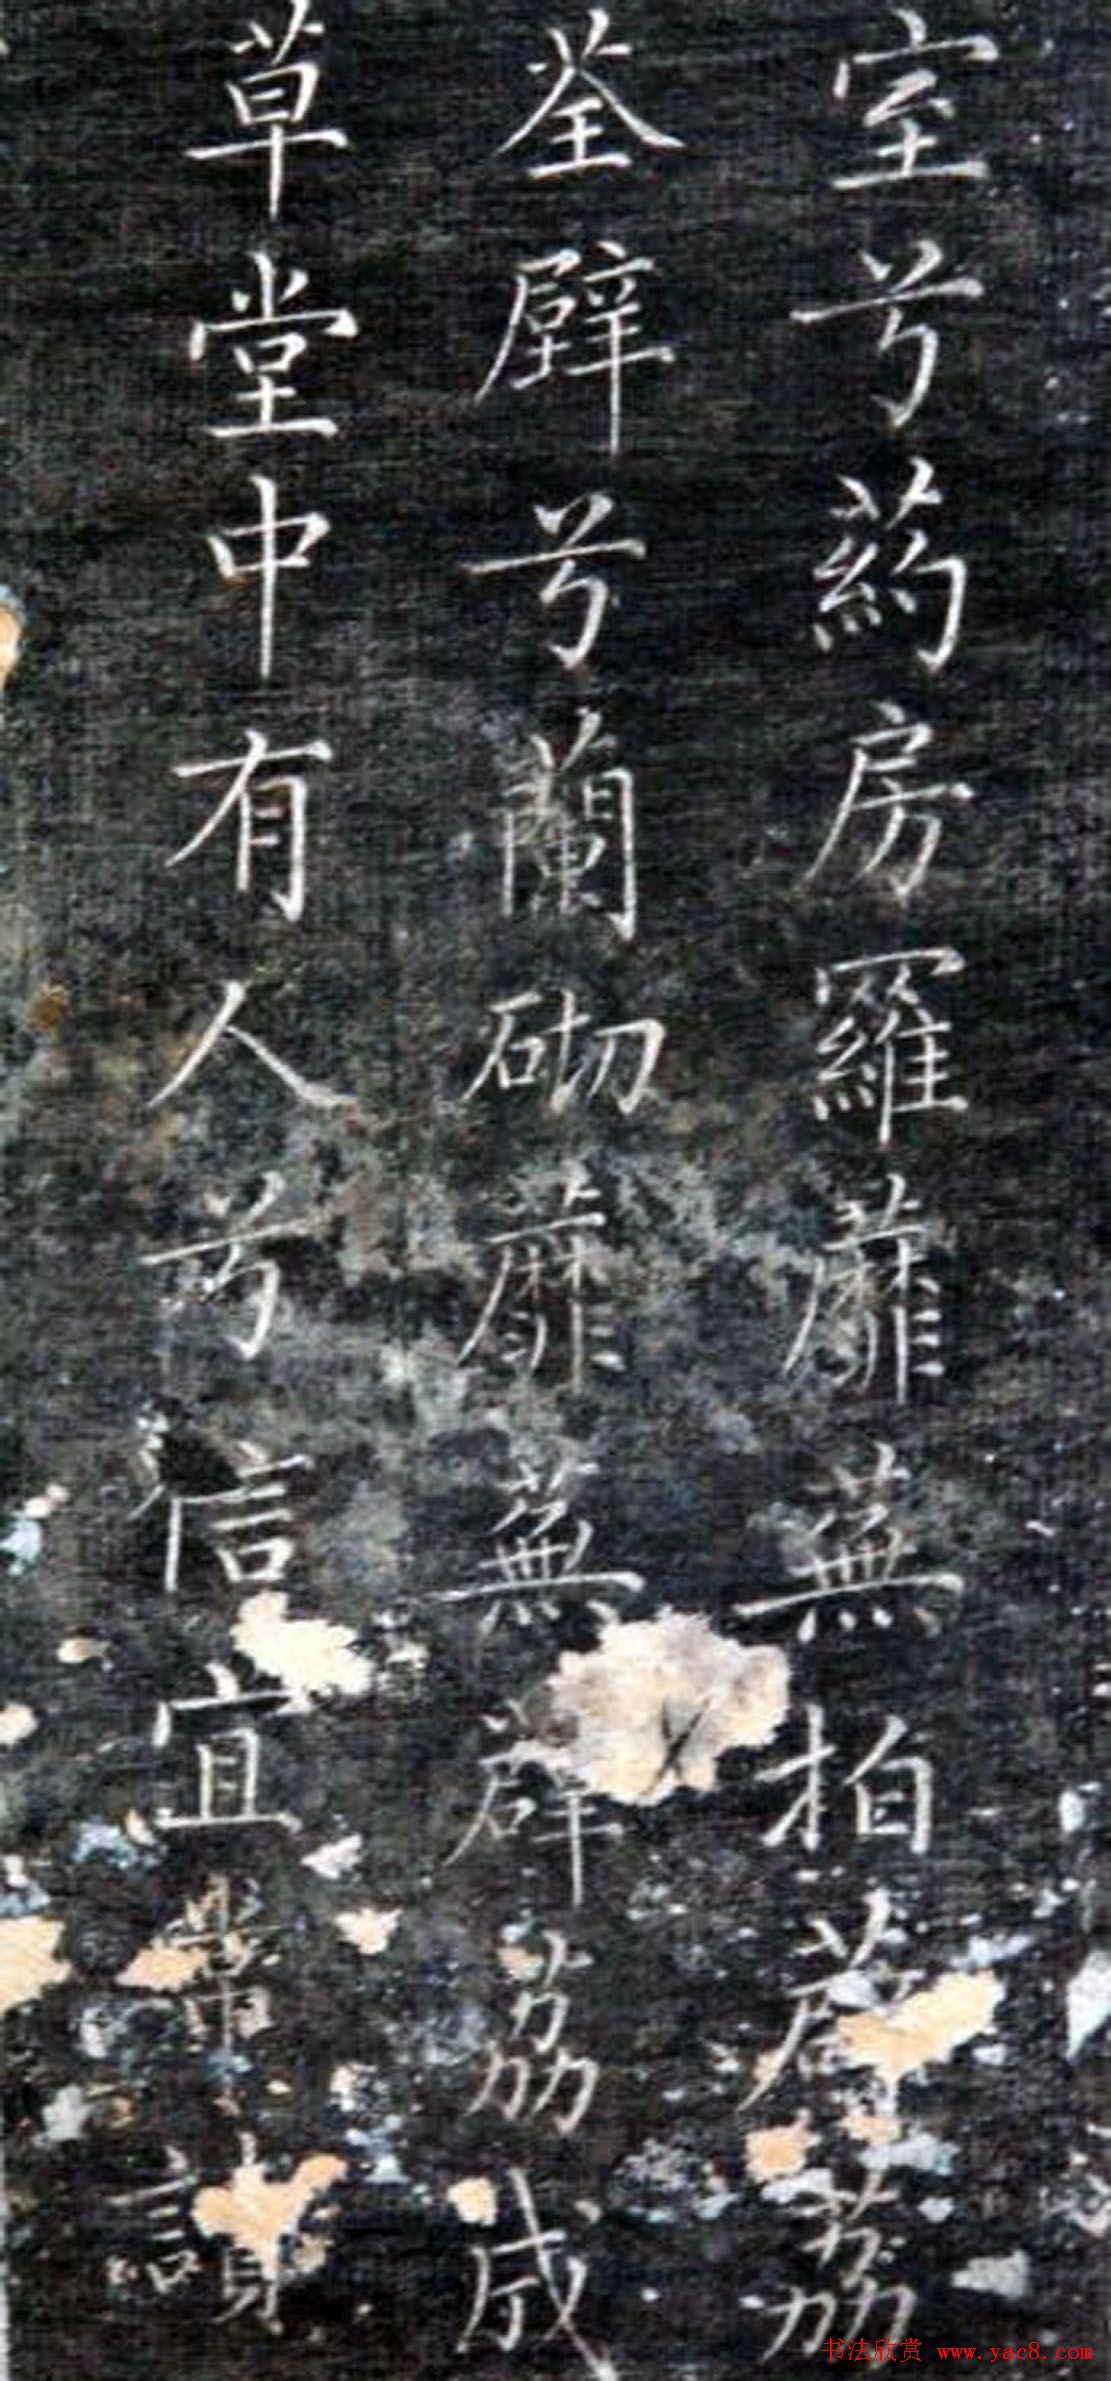 室兮药房羅蘼蕪拍薜荔
荃壁兮蘭砌蘼蕪薜荔成
草堂中有人兮信宜常讀
书法欣赏 www.yac8.com